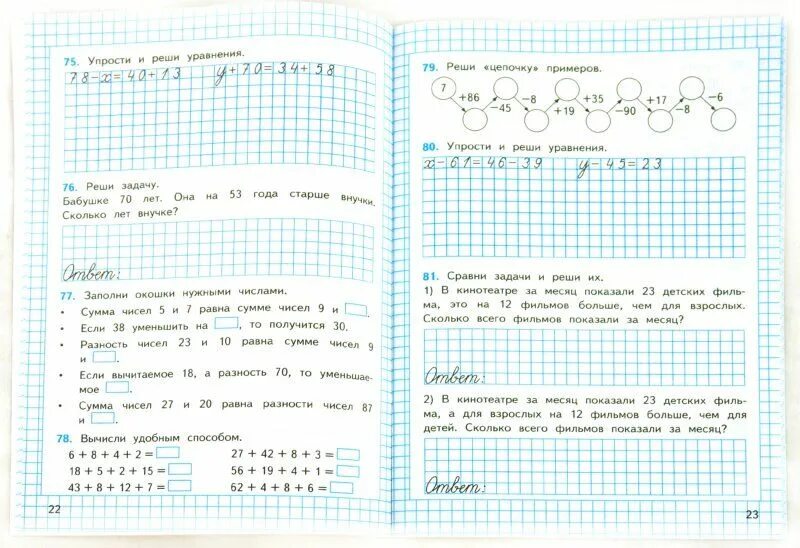 75. Упрости и реши уравнения.
78-x=40+13 y+70=34+58
76. Реши задачу.
Бабушке 70 лет. Она на 53 года старше внучки.
Сколько лет внучке?
Ответ:
77. Заполни окошки нужными числами.
• Сумма чисел 5 и 7 равна сумме чисел 9 и .
• Если 38 уменьшить на , то получится 30.
• Разность чисел 23 и 10 равна сумме чисел 9
и .
• Если вычитаемое 18, а разность 70, то уменьшае-
мое .
• Сумма чисел 27 и 20 равна разности чисел 87
и .
78. Вычисли удобным способом.
6+8+4+2= 27+42+8+3=
18+5+2+15= 56+19+4+1=
43+8+12+7= 62+4+8+6=
22
79. Реши «цепочку» примеров.
7 +86 −45 −8 +19 +35 −90 +17 −8 −6
80. Упрости и реши уравнения.
x-61=46-39 y-45=23
81. Сравни задачи и реши их.
1) В кинотеатре за месяц показали 23 детских филь-
ма, это на 12 фильмов больше, чем для взрослых.
Сколько всего фильмов показали за месяц?
Ответ:
2) В кинотеатре за месяц показали 23 детских филь-
ма, а для взрослых на 12 фильмов больше, чем для
детей. Сколько всего фильмов показали за месяц?
Ответ:
23